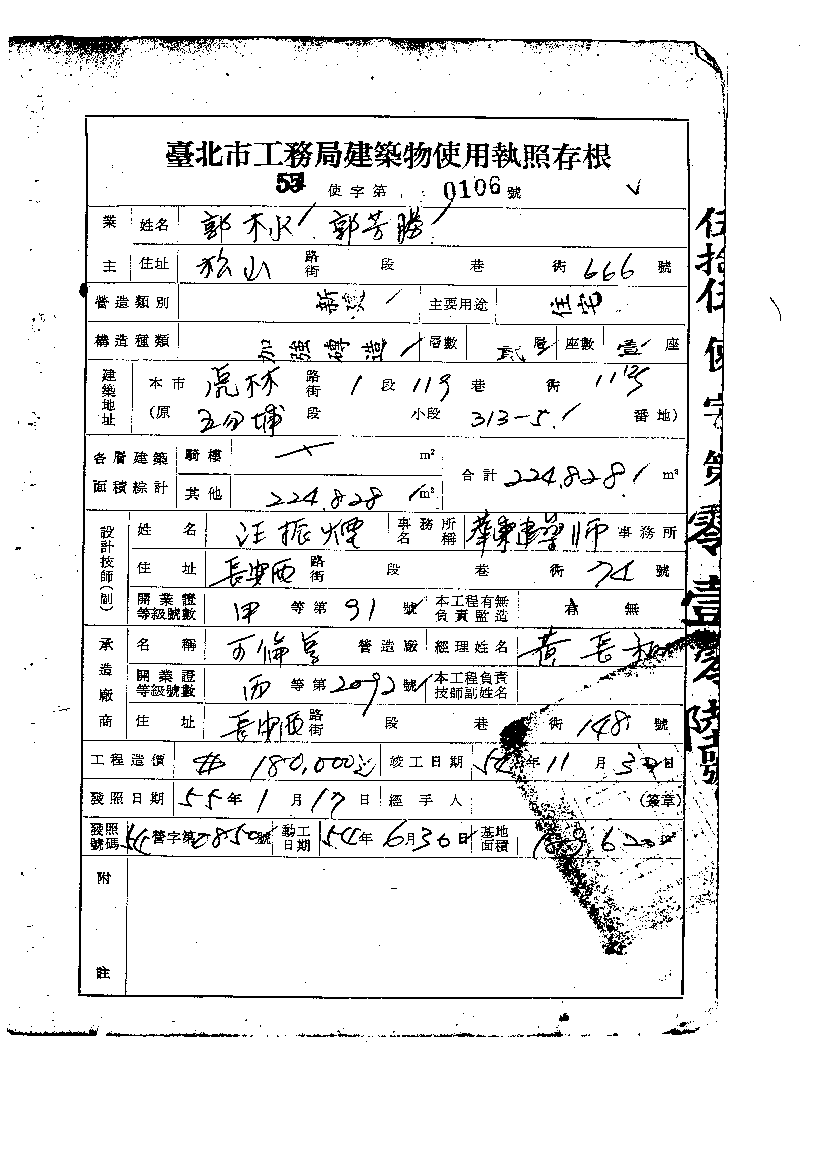 臺北市工務局建築物使用執照存根
55 使字第 0106 號
業主 姓名 郭木水 郭芳勝
住址 松山 路街 段 巷 衖 666 號
營造類別 新建 主要用途 住宅
構造種類 加強磚造 層數 貳層 座數 壹 座
建築地址 本市 虎林 路街 1 段 119 巷 衖
(原 五分埔 段 小段 313-5 番地)
各層建築面積綜計 騎樓 m² 合計 224.828 m²
其他 224.828 m²
設計技師(副) 姓名 汪振煙 事務所名稱 建築師事務所
住址 長安西 路街 段 巷 衖 74 號
開業證等級號數 甲 等第 91 號 本工程有無負責監造 有 無
承造廠商 名稱 營造廠 經理姓名 黃長
開業證等級號數 丙 等第 2092 號 本工程負責技師副姓名
住址 長安西 路街 段 巷 衖 148 號
工程造價 # 180,000元 竣工日期 54 年 11 月 30 日
發照日期 55 年 1 月 17 日 經手人 (簽章)
發照號碼 54 營字第 0850 號 動工日期 54 年 6 月 30 日 基地面積
附註
伍拾伍使字第零壹零陸號